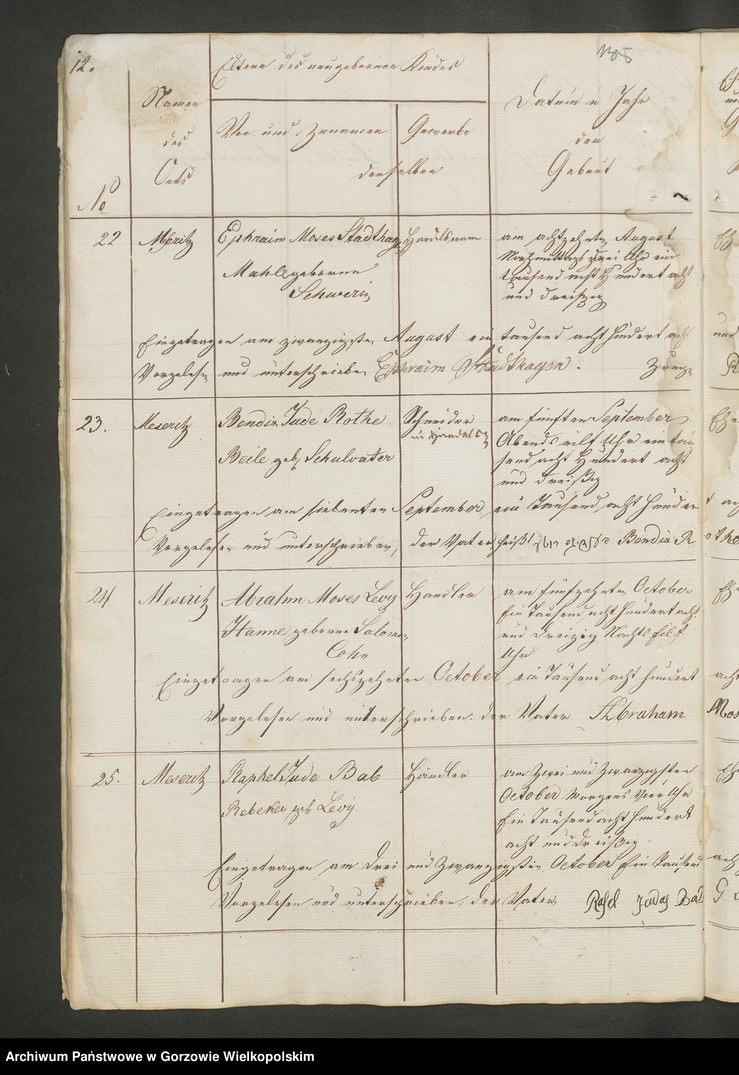 12.
Eltern des neugebornen Kindes
Namen
des
Orts
No
Vor- und Zunamen
Gewerbe
derselben
Datum u Jahr
der
Geburt
22 Meseritz Ephraim Moses Stadthagen Handelsmann am achtzehnten August
Nachmittags zwei Uhr ein
Mahle geborene tausend acht Hundert acht
Schwerin und dreißig
Eingetragen am zwanzigsten August ein tausend acht hundert acht
Vorgelesen und unterschrieben Ephraim Stadthagen.
23. Meseritz Bendix Jude Rothe Schneider am fünften September
Abends eilf Uhr ein tau
Beile geb. Schulvater send acht Hundert acht
und dreißig
Eingetragen am siebenten September ein Tausend acht hunder
Vorgelesen und unterschrieben, der Vater Bendix R
24 Meseritz Abrahm Moses Levy Handler am fünfzehnten October
Ein Tausend acht hundert acht
Hanne geborne Salomon und dreizig Nachts Eilf
Cohn Uhr
Eingetragen am sechszehnten October ein Tausend acht hundert
Vorgelesen und unterschrieben. der Vater Abraham
25. Meseritz Raphel Jude Bab Händler am Zwei und Zwanzigsten
October Morgens Vier Uhr
Rebeka geb Levy Ein Tausend acht hundert
acht und dreißig.
Eingetragen am Drei und Zwanzigsten October Ein Tausend
Vorgelesen und unterschrieben, der Vater Rafel Judas Bab
Archiwum Państwowe w Gorzowie Wielkopolskim